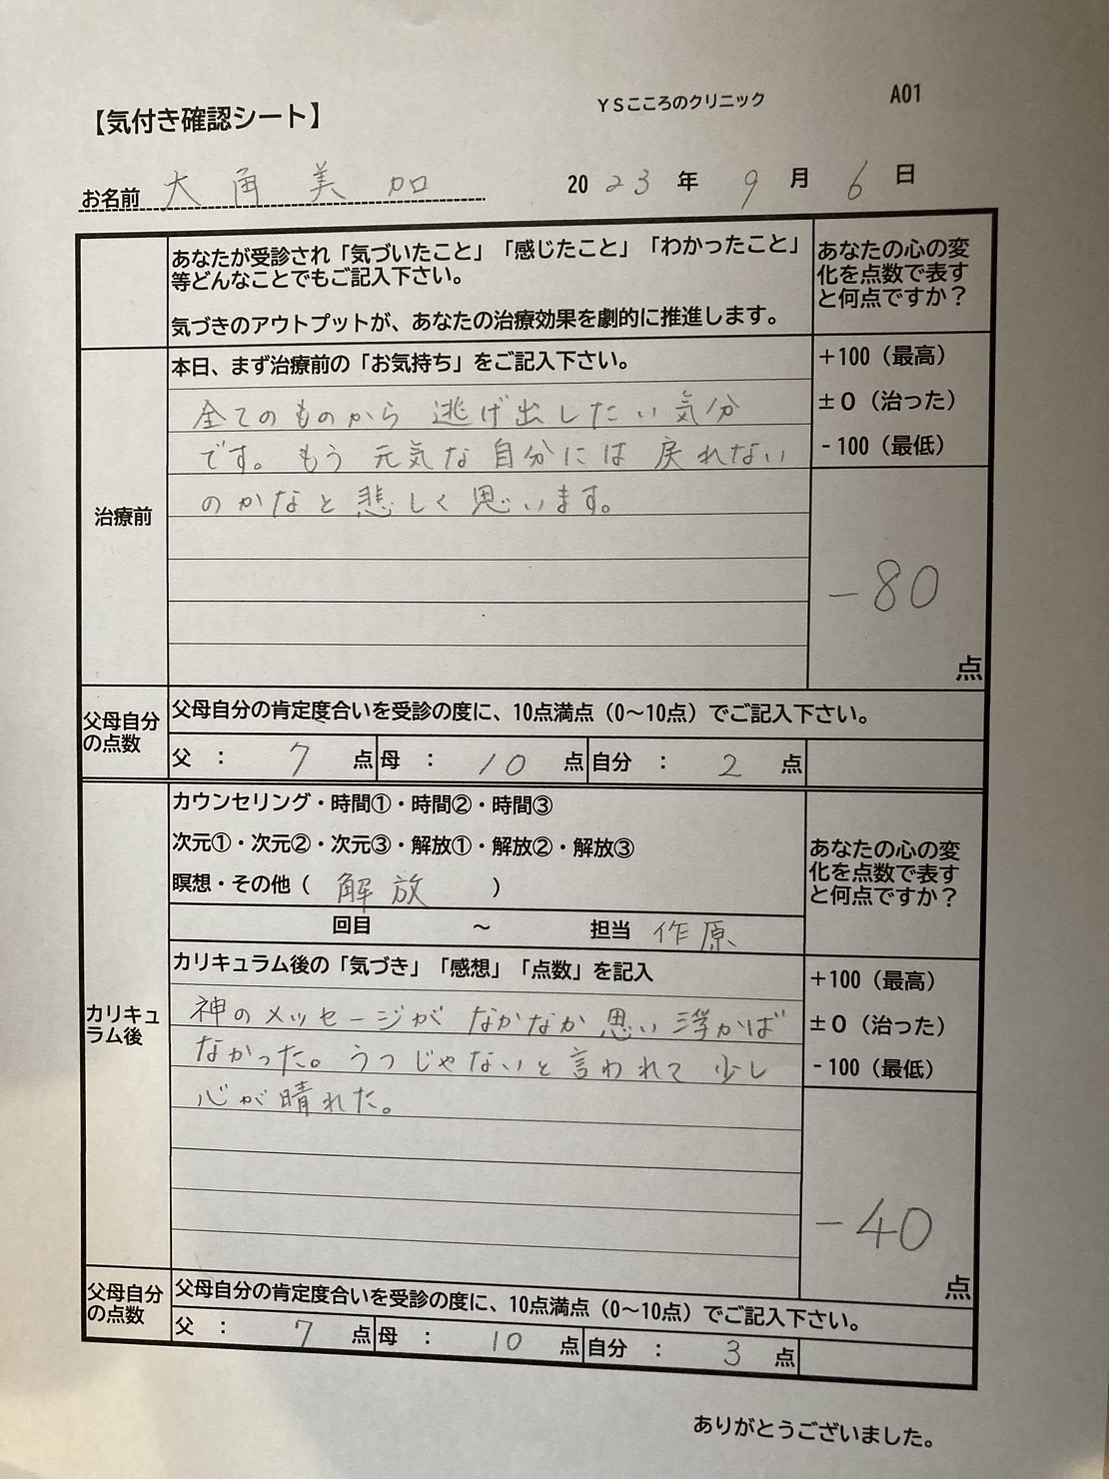 【気付き確認シート】
YSこころのクリニック
A01
お名前 大角美加
2023年9月6日
あなたが受診され「気づいたこと」「感じたこと」「わかったこと」
等どんなことでもご記入下さい。
気づきのアウトプットが、あなたの治療効果を劇的に推進します。
あなたの心の変
化を点数で表す
と何点ですか？
治療前
本日、まず治療前の「お気持ち」をご記入下さい。
全てのものから逃げ出したい気分
です。もう元気な自分には戻れない
のかなと悲しく思います。
+100（最高）
±0（治った）
-100（最低）
-80
点
父母自分
の点数
父母自分の肯定度合いを受診の度に、10点満点（0～10点）でご記入下さい。
父：7点 母：10点 自分：2点
カリキュ
ラム後
カウンセリング・時間①・時間②・時間③
次元①・次元②・次元③・解放①・解放②・解放③
瞑想・その他（解放）
回目 ～ 担当 作原
あなたの心の変
化を点数で表す
と何点ですか？
カリキュラム後の「気づき」「感想」「点数」を記入
神のメッセージがなかなか思い浮かば
なかった。うつじゃないと言われて少し
心が晴れた。
+100（最高）
±0（治った）
-100（最低）
-40
点
父母自分
の点数
父母自分の肯定度合いを受診の度に、10点満点（0～10点）でご記入下さい。
父：7点 母：10点 自分：3点
ありがとうございました。